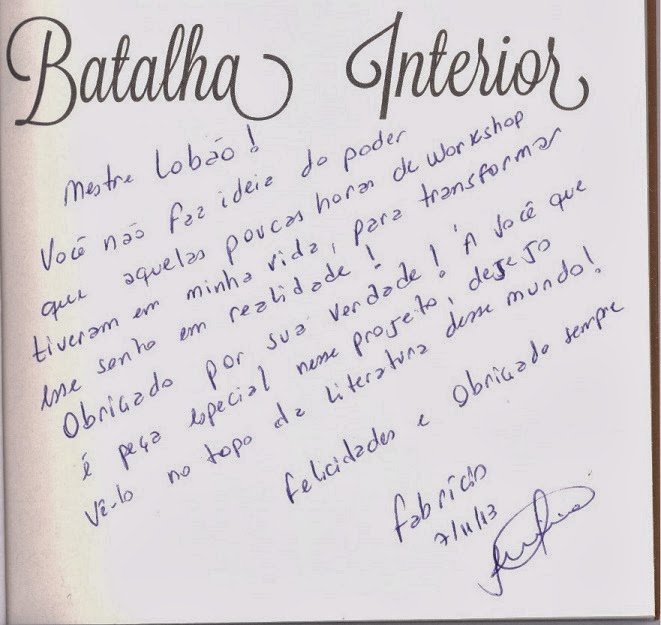 Batalha Interior
Mestre Lobão!
Você não faz ideia do poder
que aquelas poucas horas de workshop
tiveram em minha vida, para transformar
esse sonho em realidade!
Obrigado por sua verdade! À você que
é peça especial nesse projeto, desejo
Vê-lo no topo da Literatura desse mundo!
Felicidades e Obrigado sempre
Fabrício
7/11/13